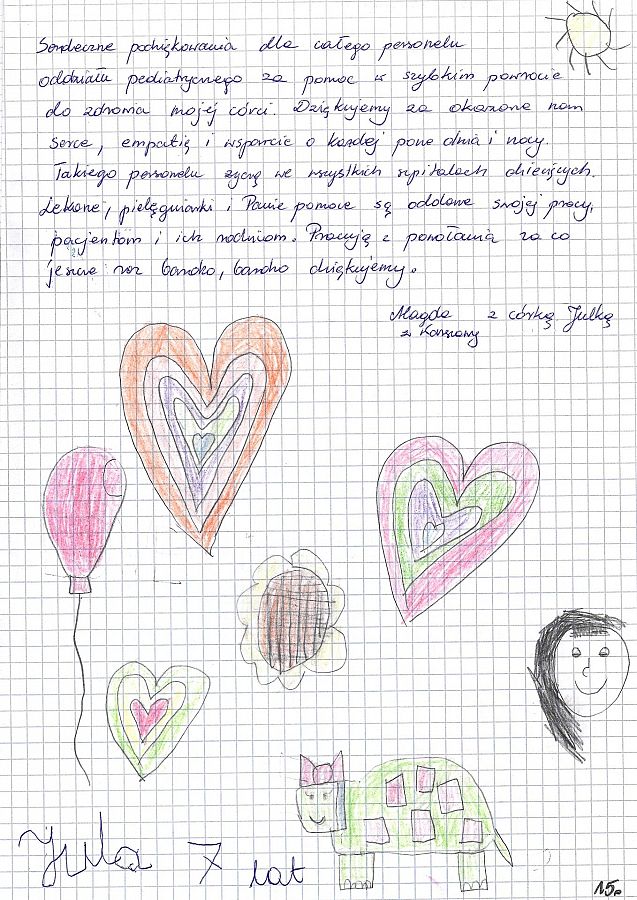 Serdeczne podziękowania dla całego personelu
oddziału pediatrycznego za pomoc w szybkim powrocie
do zdrowia mojej córci. Dziękujemy za okazane nam
serce, empatię i wsparcie o każdej porze dnia i nocy.
Takiego personelu życzę we wszystkich szpitalach dziecięcych.
Lekarze, pielęgniarki i Panie pomoce są oddane swojej pracy,
pacjentom i ich rodzinom. Pracują z powołania za co
jeszcze raz bardzo, bardzo dziękujemy.
Magda z córką Julką
z
Jula 7 lat